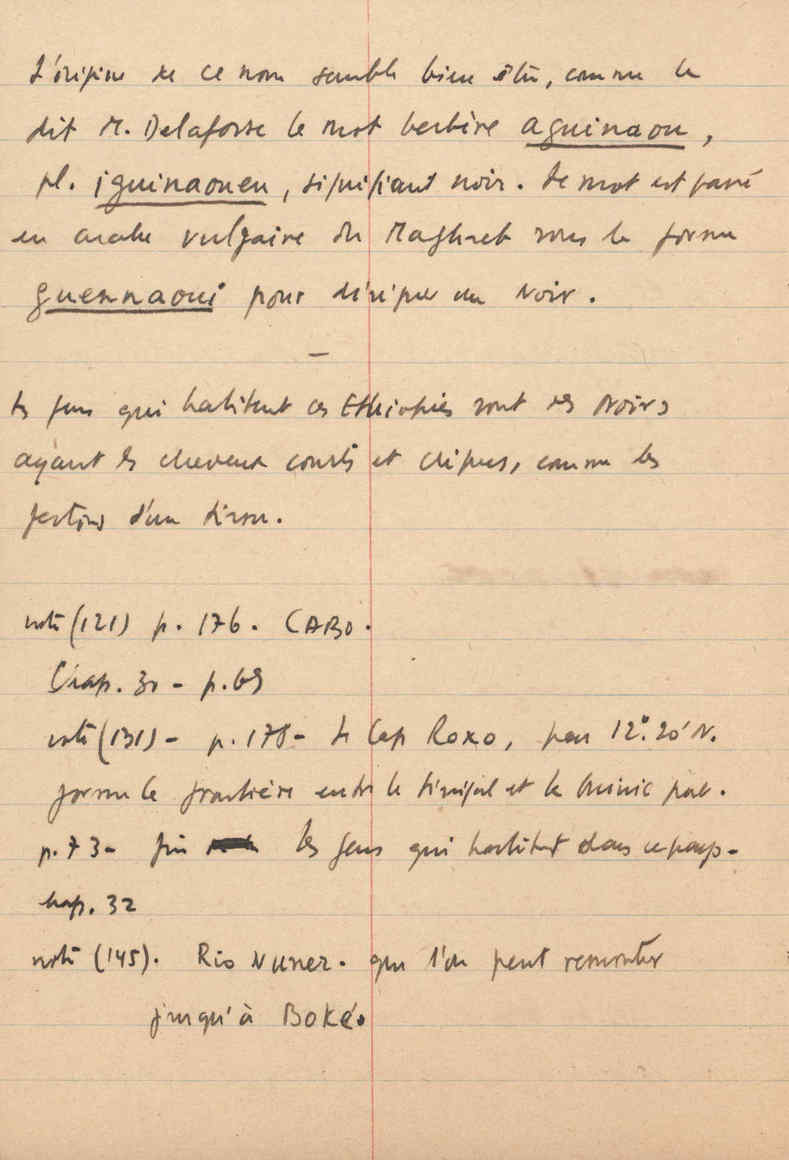 L'origine de ce nom semble bien être, comme le
dit M. Delafosse le mot berbère aguinaou,
pl. iguinaouen, signifiant noir. Le mot est passé
en arabe vulgaire du Maghreb sous la forme
guennaoui pour désigner un Noir.
–
Les gens qui habitent ces Ethiopies sont des Noirs
ayant les cheveux courts et crépus, comme les
d'un tissu.
note (121) p. 176. CABO.
Chap. 30 - p. 69
note (131) - p. 178 - Le Cap Roxo, par 12°.20' N.
forme la frontière entre le Sénégal et la Guinée port.
p. 73 - fin les gens qui habitent dans ce pays -
chap. 32
note (145). Rio Nunez. que l'on peut remonter
jusqu'à Boké.